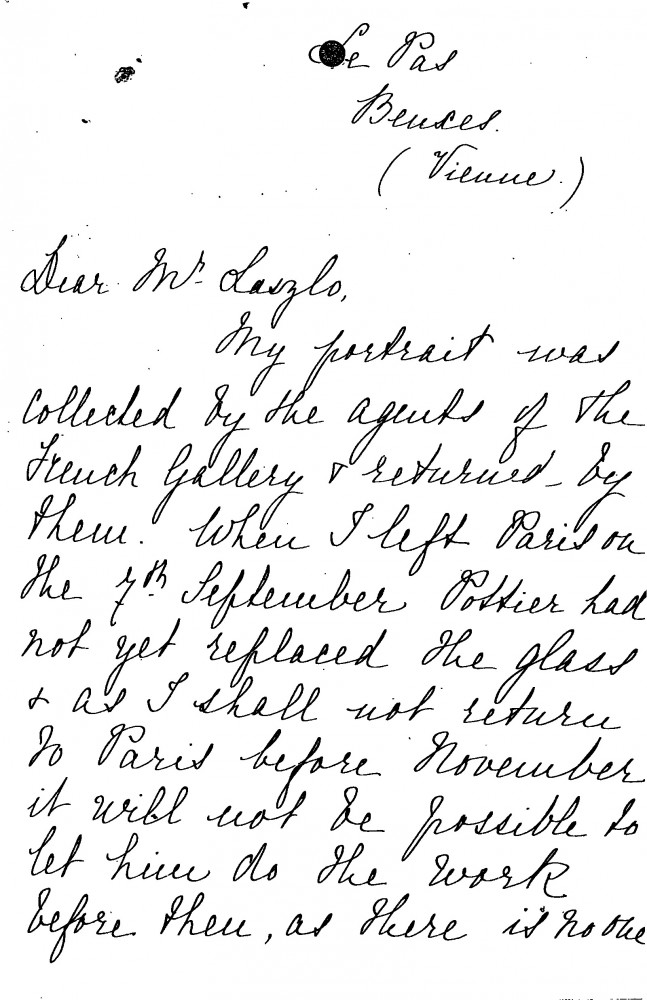 Le Pas
Beuxes.
(Vienne.)
Dear Mr. Laszlo,
My portrait was
collected by the agents of the
French Gallery & returned by
them. When I left Paris on
the 7th September Pottier had
not yet replaced the glass
& as I shall not return
to Paris before November
it will not be possible to
let him do the work
before then, as there is no one